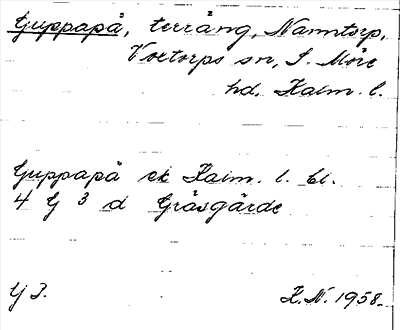 Guppapå, terräng, Namntorp,
Voxtorps sn, S. Möre
hd, Kalm. l.
Guppapå ek Kalm. l. bl.
4 G 3 d Gräsgärde
G J.
K. N. 1958.